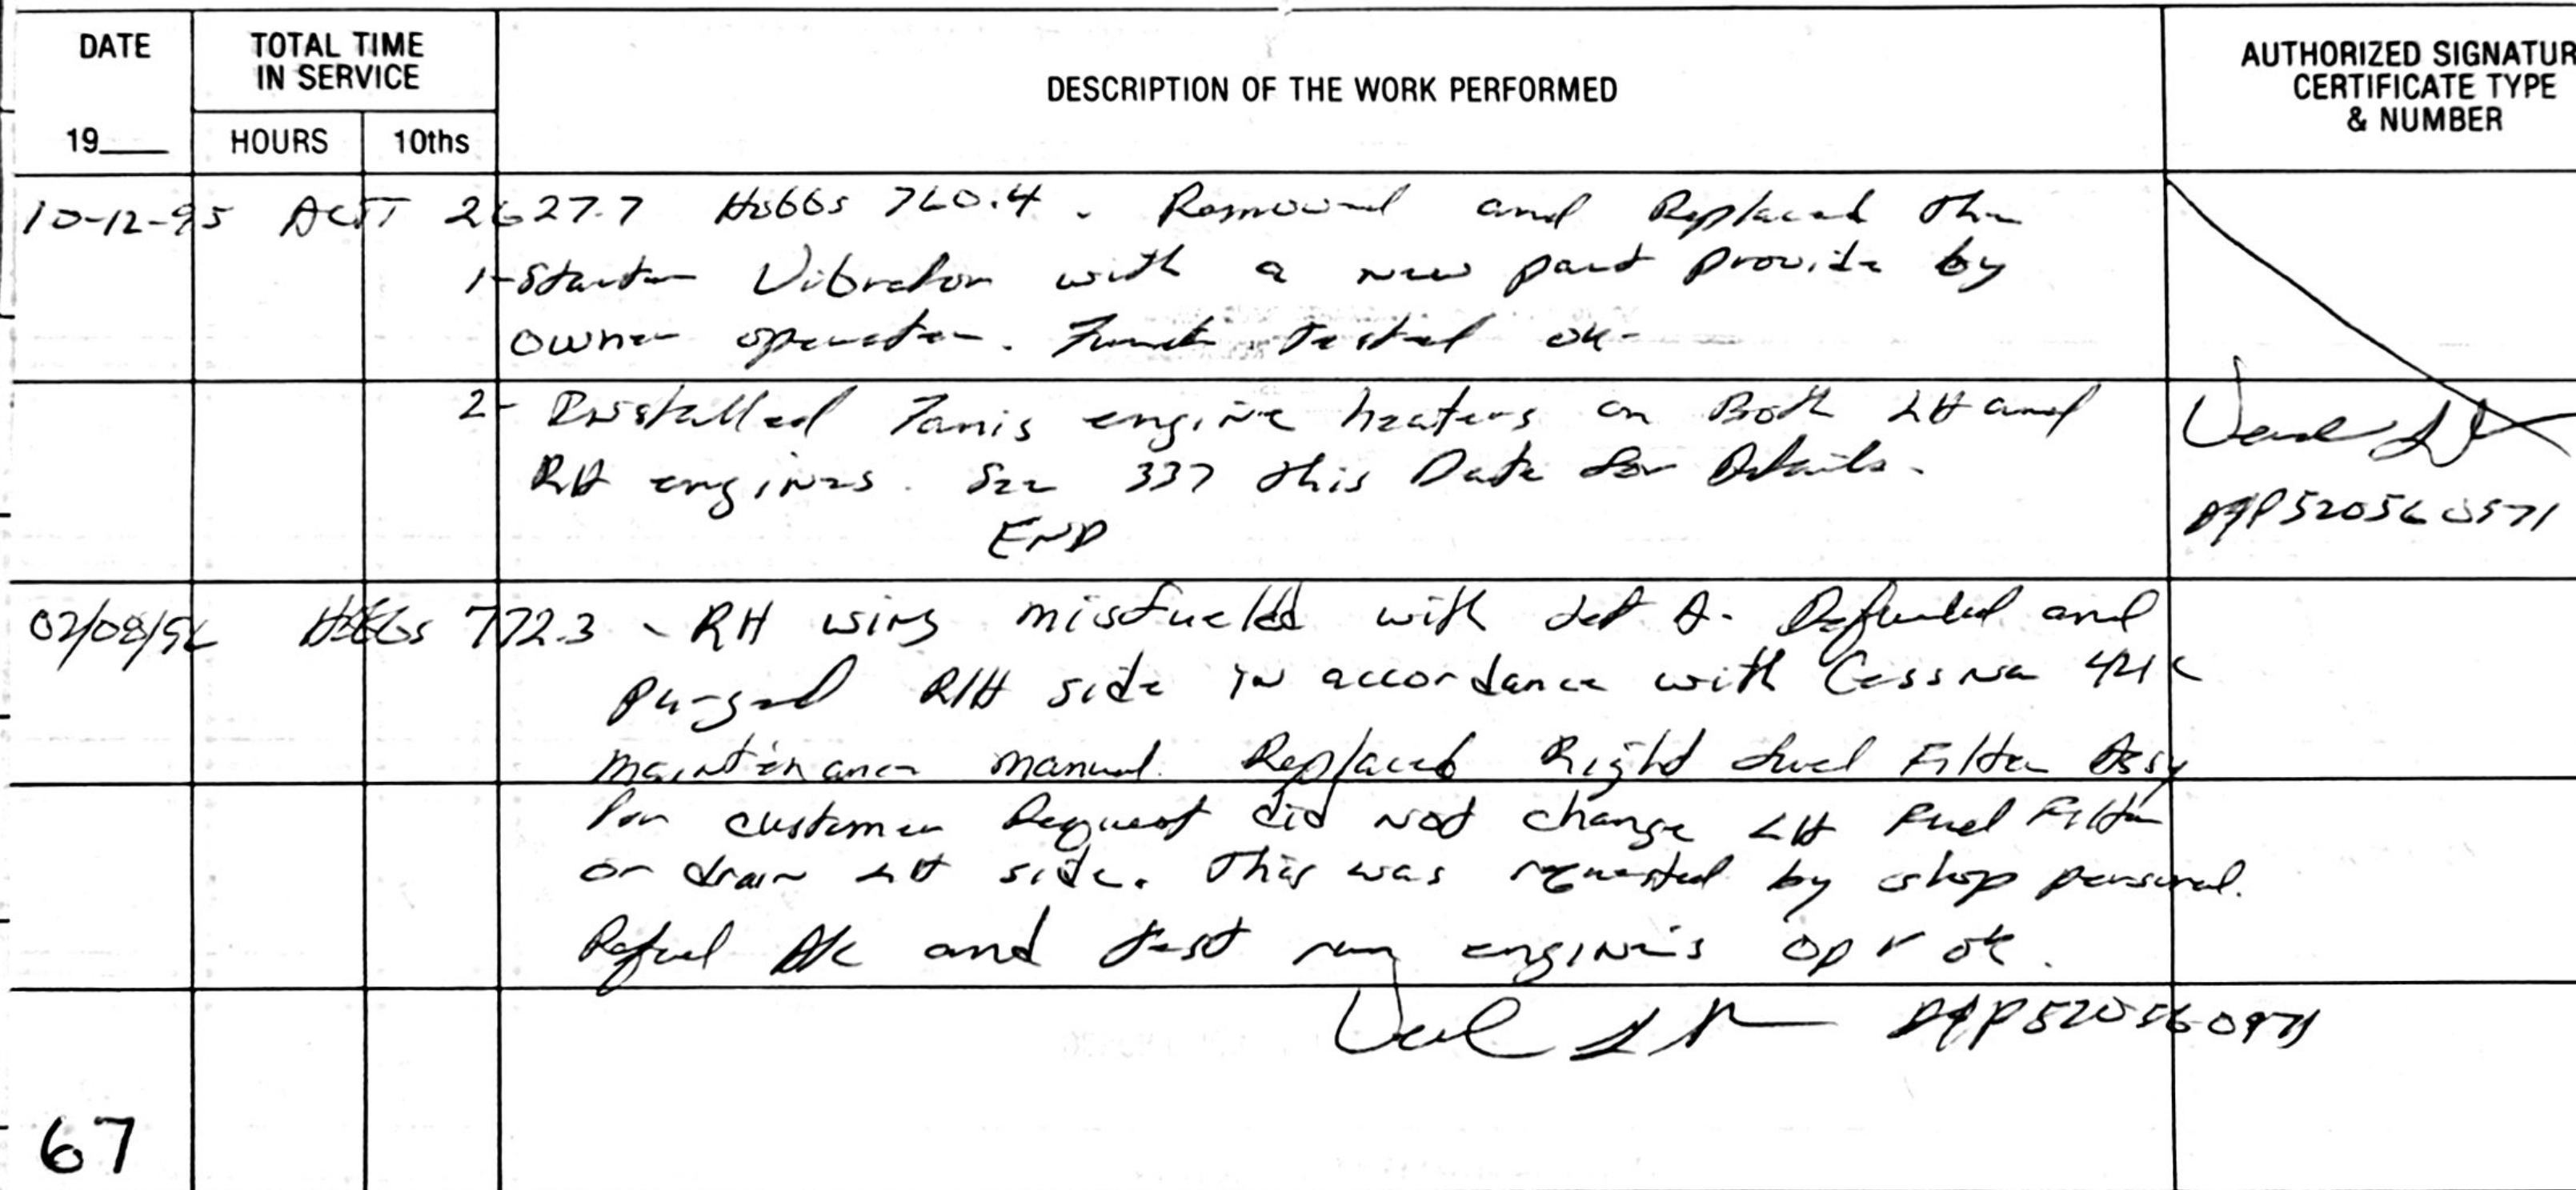 DATE
TOTAL TIME
IN SERVICE
DESCRIPTION OF THE WORK PERFORMED
AUTHORIZED SIGNATUR
CERTIFICATE TYPE
& NUMBER
19___
HOURS
10ths
10-12-95 ACTT 2627.7 Hobbs 760.4. Removed and Replaced the
1- Starter Vibrator with a new part provide by
owner operator. Funct. tested ok-
2- Installed Tanis engine heaters on Both LH and
RH engines. See 337 this Date for Details.
END
A&P 520560571
02/08/96 Hobbs 772.3 - RH wing misfueled with Jet A. Defueled and
purged R/H side in accordance with Cessna 421C
maintenance manual. Replaced Right fuel Filter Assy
Per customer Request did not change LH Fuel Filter
or drain LH side. This was requested by shop personal.
Refuel A/C and test run engines opr ok.
A&P 520560971
67